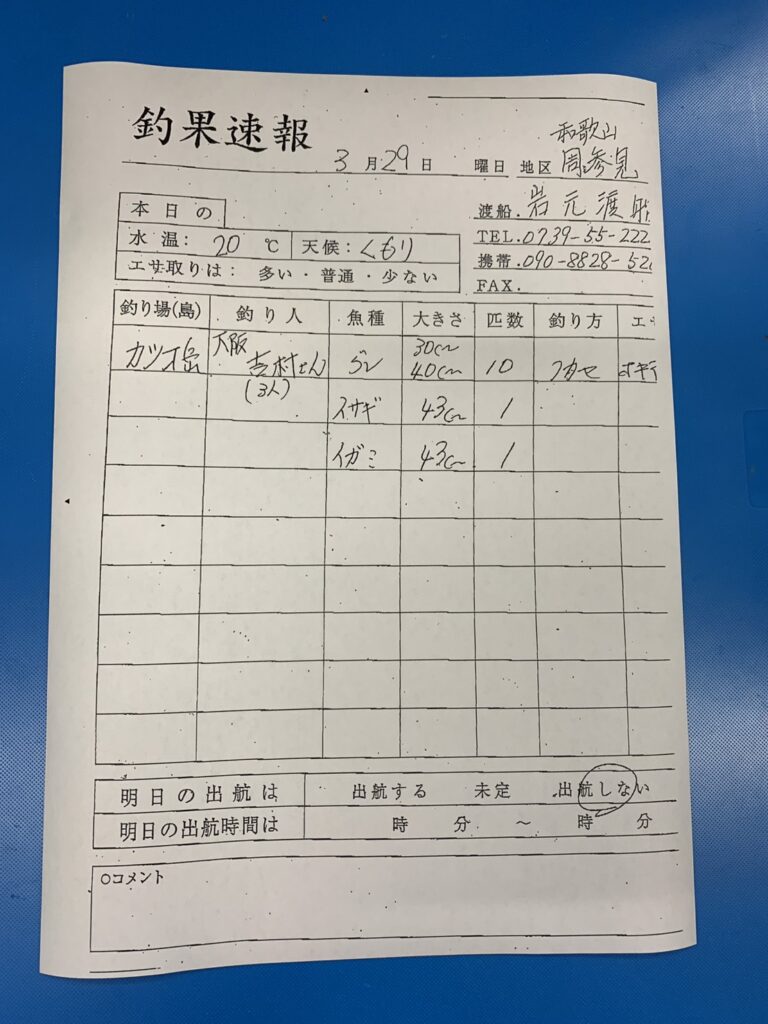 釣果速報
3月29日 曜日 地区 和歌山 周参見
渡船. 岩元渡船
TEL.0739-55-222
携帯.090-8828-52
FAX.
本日の
水温: 20 ℃ 天候: くもり
エサ取りは: 多い・普通・少ない
釣り場(島) 釣り人 魚種 大きさ 匹数 釣り方 エサ
カツオ島 大阪 吉村さん (3人) グレ 30cm~ 40cm 10 フカセ オキア
スサギ 43cm 1
イガミ 43cm 1
明日の出航は 出航する 未定 出航しない
明日の出航時間は 時 分 ~ 時 分
○コメント